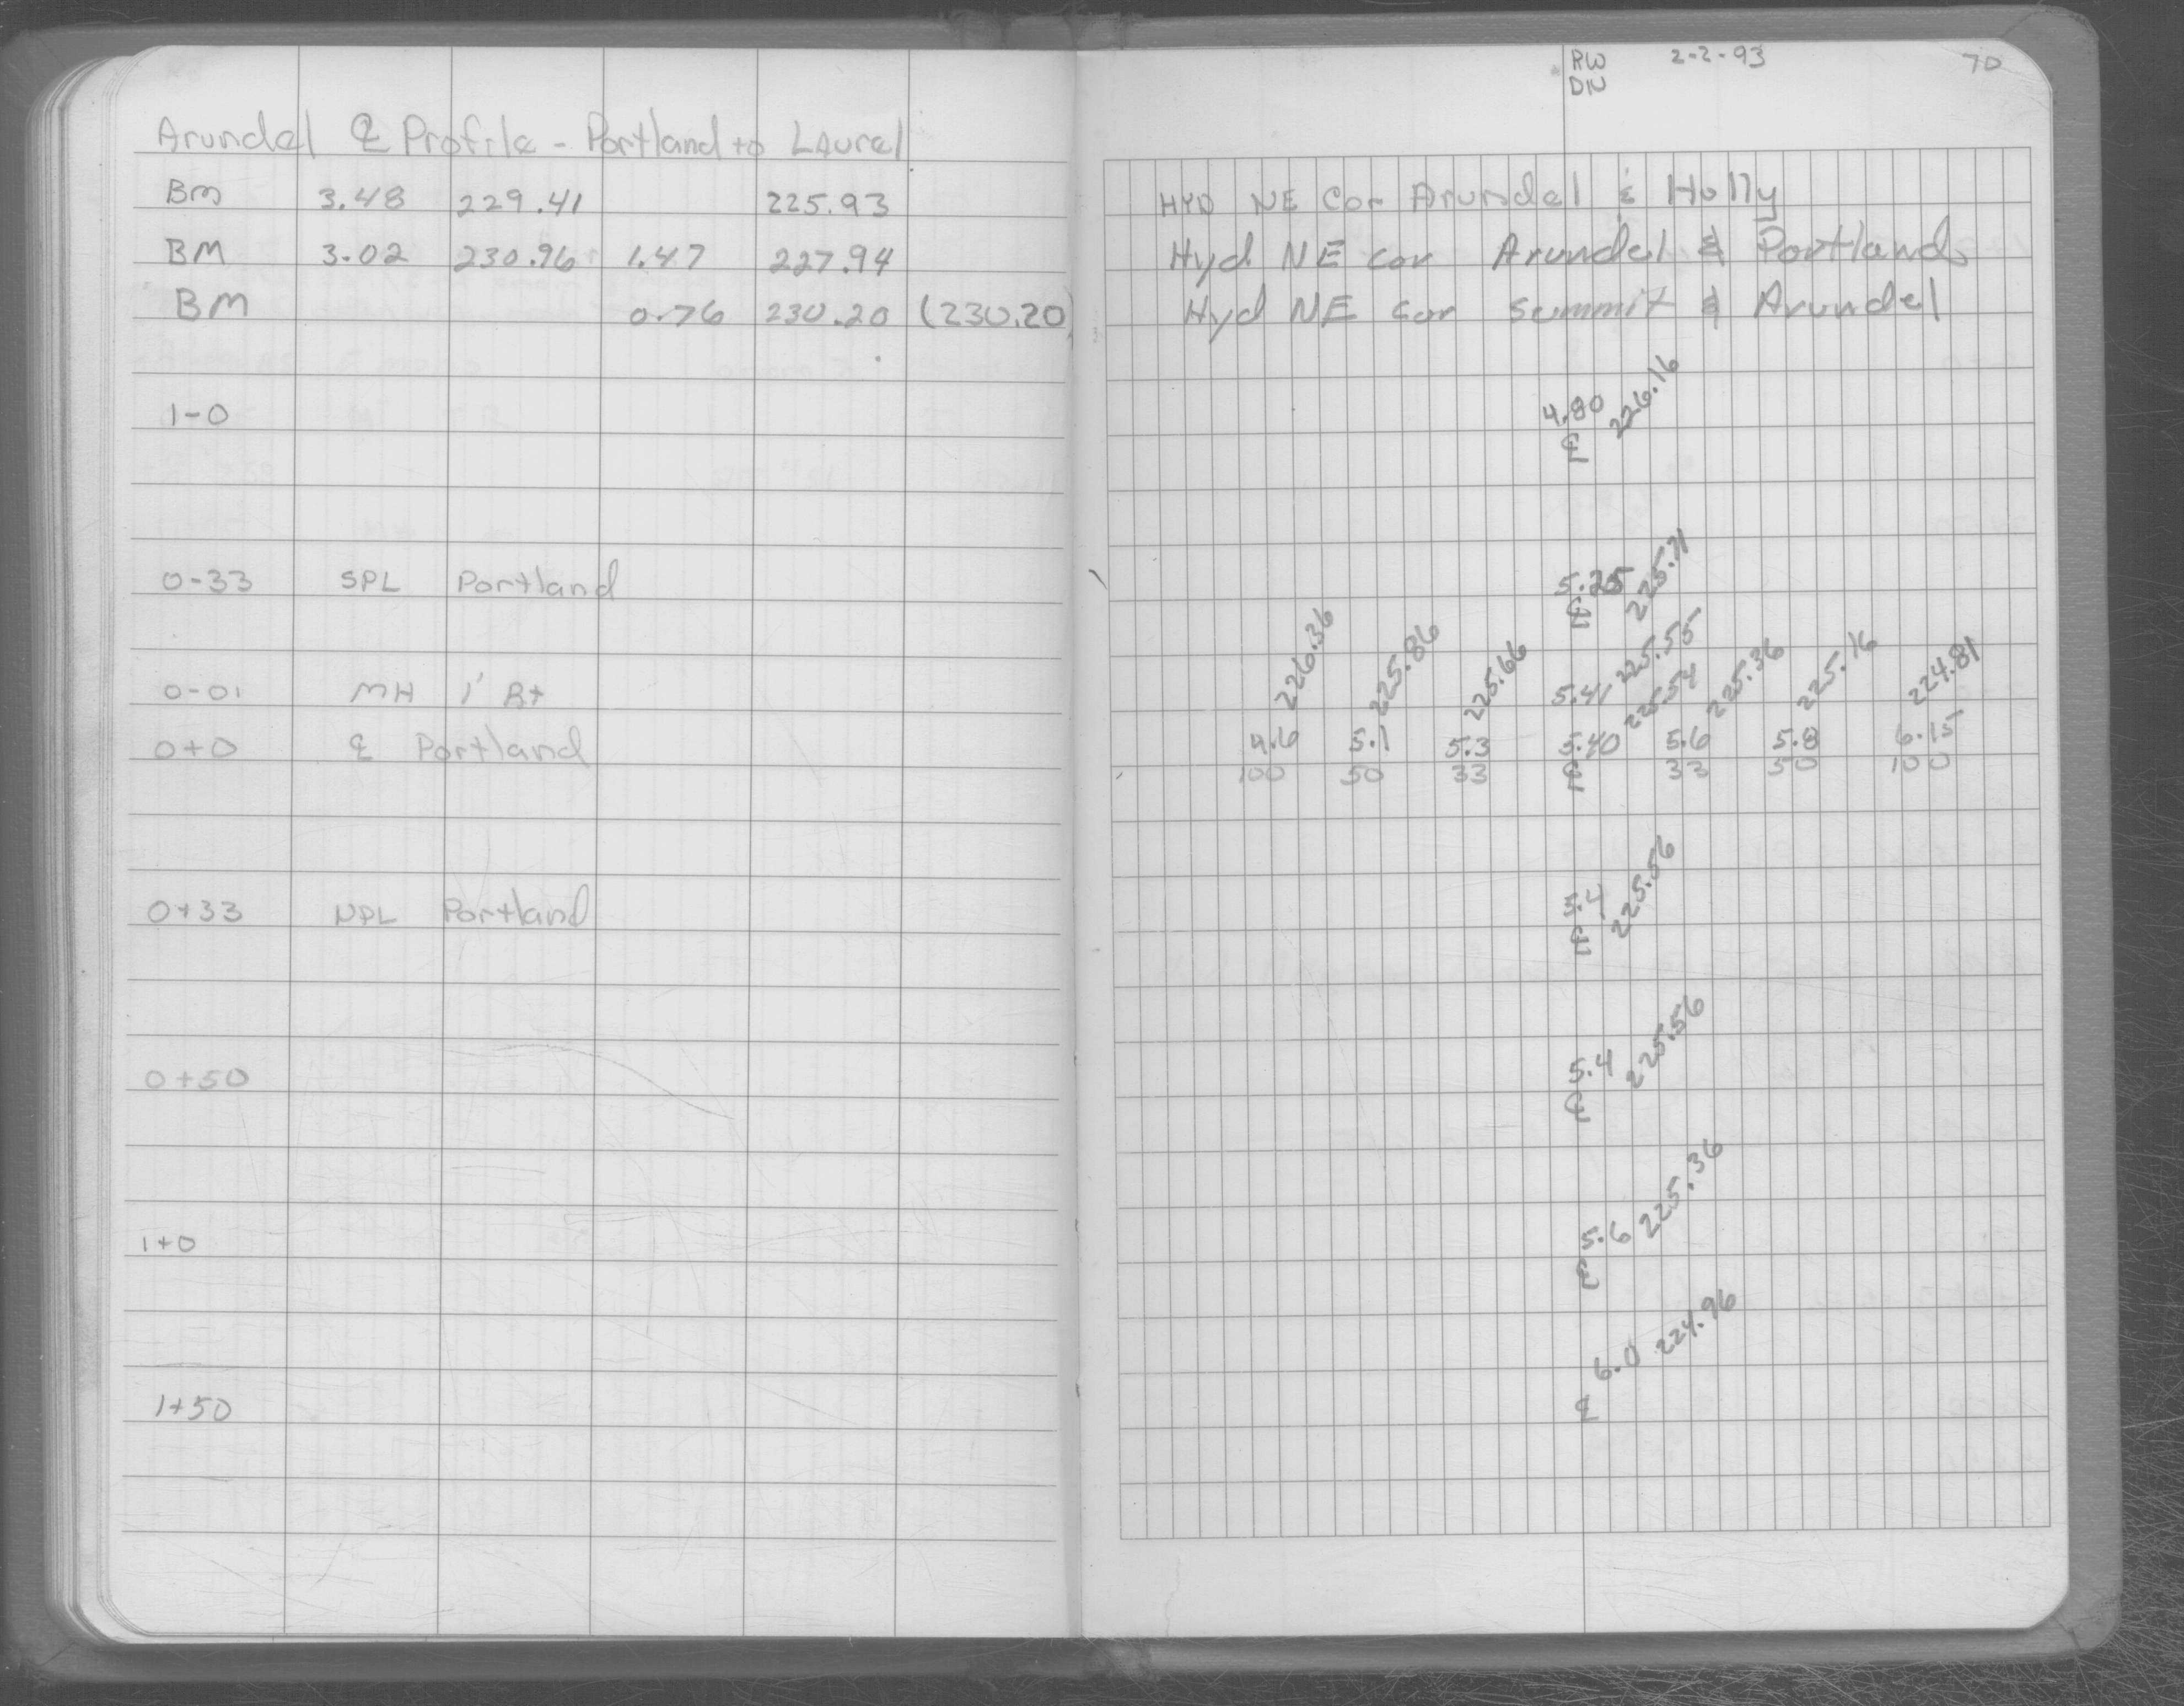 RW 2-2-93 70
DN
Arundel ℄ Profile - Portland to Laurel
BM 3.48 229.41 225.93 HYD NE Cor Arundel & Holly
BM 3.02 230.96 1.47 227.94 Hyd NE cor Arundel & Portland
BM 0.76 230.20 (230.20) Hyd NE cor Summit & Arundel
1-0 4.80 226.16
℄
0-33 SPL Portland 5.25 225.71
℄
0-01 MH 1' Rt 5.41 225.55
226.36 225.86 225.66 225.54 225.36 225.16 224.81
0+0 ℄ Portland 4.6 5.1 5.3 5.40 5.6 5.8 6.15
100 50 33 ℄ 33 50 100
0+33 NPL Portland 5.4 225.56
℄
0+50 5.4 225.56
℄
1+0 5.6 225.36
℄
6.0 224.96
1+50 ℄